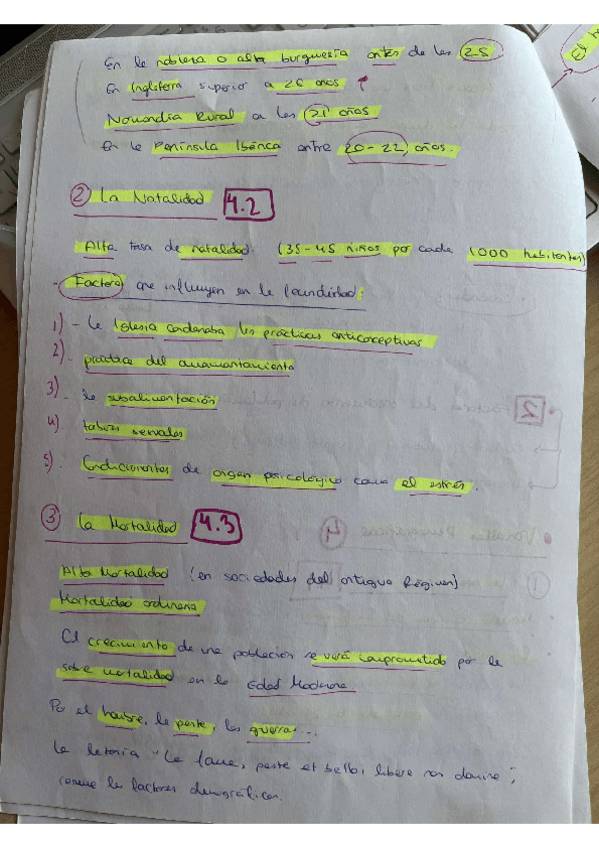 En la nobleza o alta burguesía antes de los 25
En Inglaterra superior a 26 años ↑
Normandía Rural a los 21 años
En la Península Ibérica entre 20-22 años.
② La Natalidad 4.2
Alta tasa de natalidad. (35-45 niños por cada 1000 habitantes)
- Factores que influyen en la fecundidad:
1) - La Iglesia condenaba las prácticas anticonceptivas
2) - práctica del amamantamiento
3) - la subalimentación
4) tabúes sexuales
5) - Condicionantes de origen psicológico como el estrés.
③ La Mortalidad 4.3
Alta Mortalidad (en sociedades del antiguo Régimen)
Mortalidad ordinaria
El crecimiento de una población se verá comprometido por la
sobre mortalidad en la Edad Moderna
Por el hambre, la peste, las guerras...
La letanía "